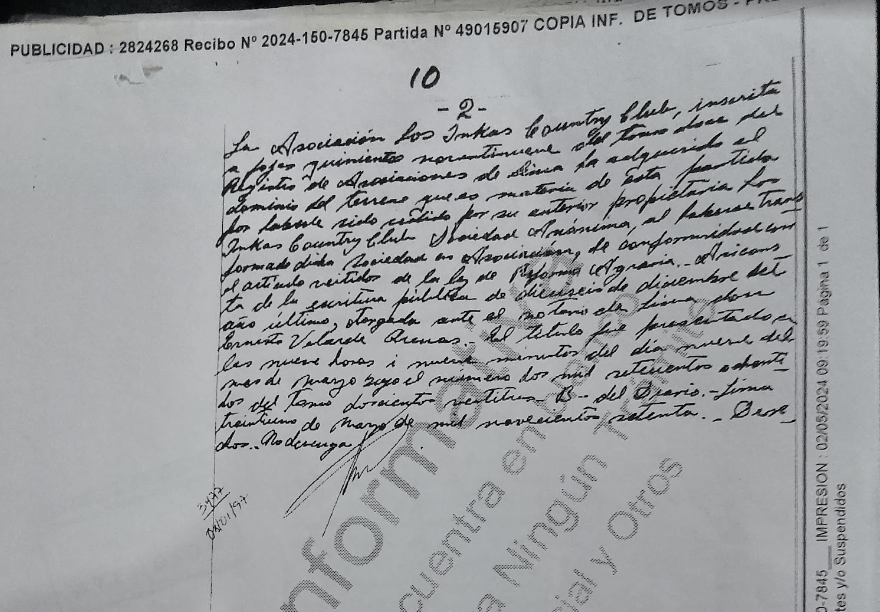 PUBLICIDAD : 2824268 Recibo Nº 2024-150-7845 Partida Nº 49015907 COPIA INF. DE TOMOS -
10
- 2 -
La Asociación Los Inkas Country Club, inscrita
a fojas quinientos noventinueve del tomo doce del
Registro de Asociaciones de Lima ha adquirido el
dominio del terreno que es materia de esta partida
por haberle sido cedido por su anterior propietaria Los
Inkas Country Club Sociedad Anónima, al haberse trans-
formado dicha sociedad en Asociación, de conformidad con
el artículo veintidos de la ley de Reforma Agraria.- Así cons-
ta de la escritura pública de dieciseis de diciembre del
año último, otorgada ante el notario de Lima don
Ernesto Velarde Arenas.- El título fue presentado a
las nueve horas i nueve minutos del día nueve del
mes de marzo bajo el número dos mil setecientos ochenti-
dos del tomo doscientos ventitres - B - del Diario.- Lima
treintiuno de Marzo de mil novecientos setenta.- Dere-
dos.- No devenga
3477
08/01/97
Informativa
cuentra en
a Ningún Trámite
ial y Otros
0-7845 IMPRESION : 02/05/2024 09:19:59 Página 1 de 1
tes y/o Suspendidos